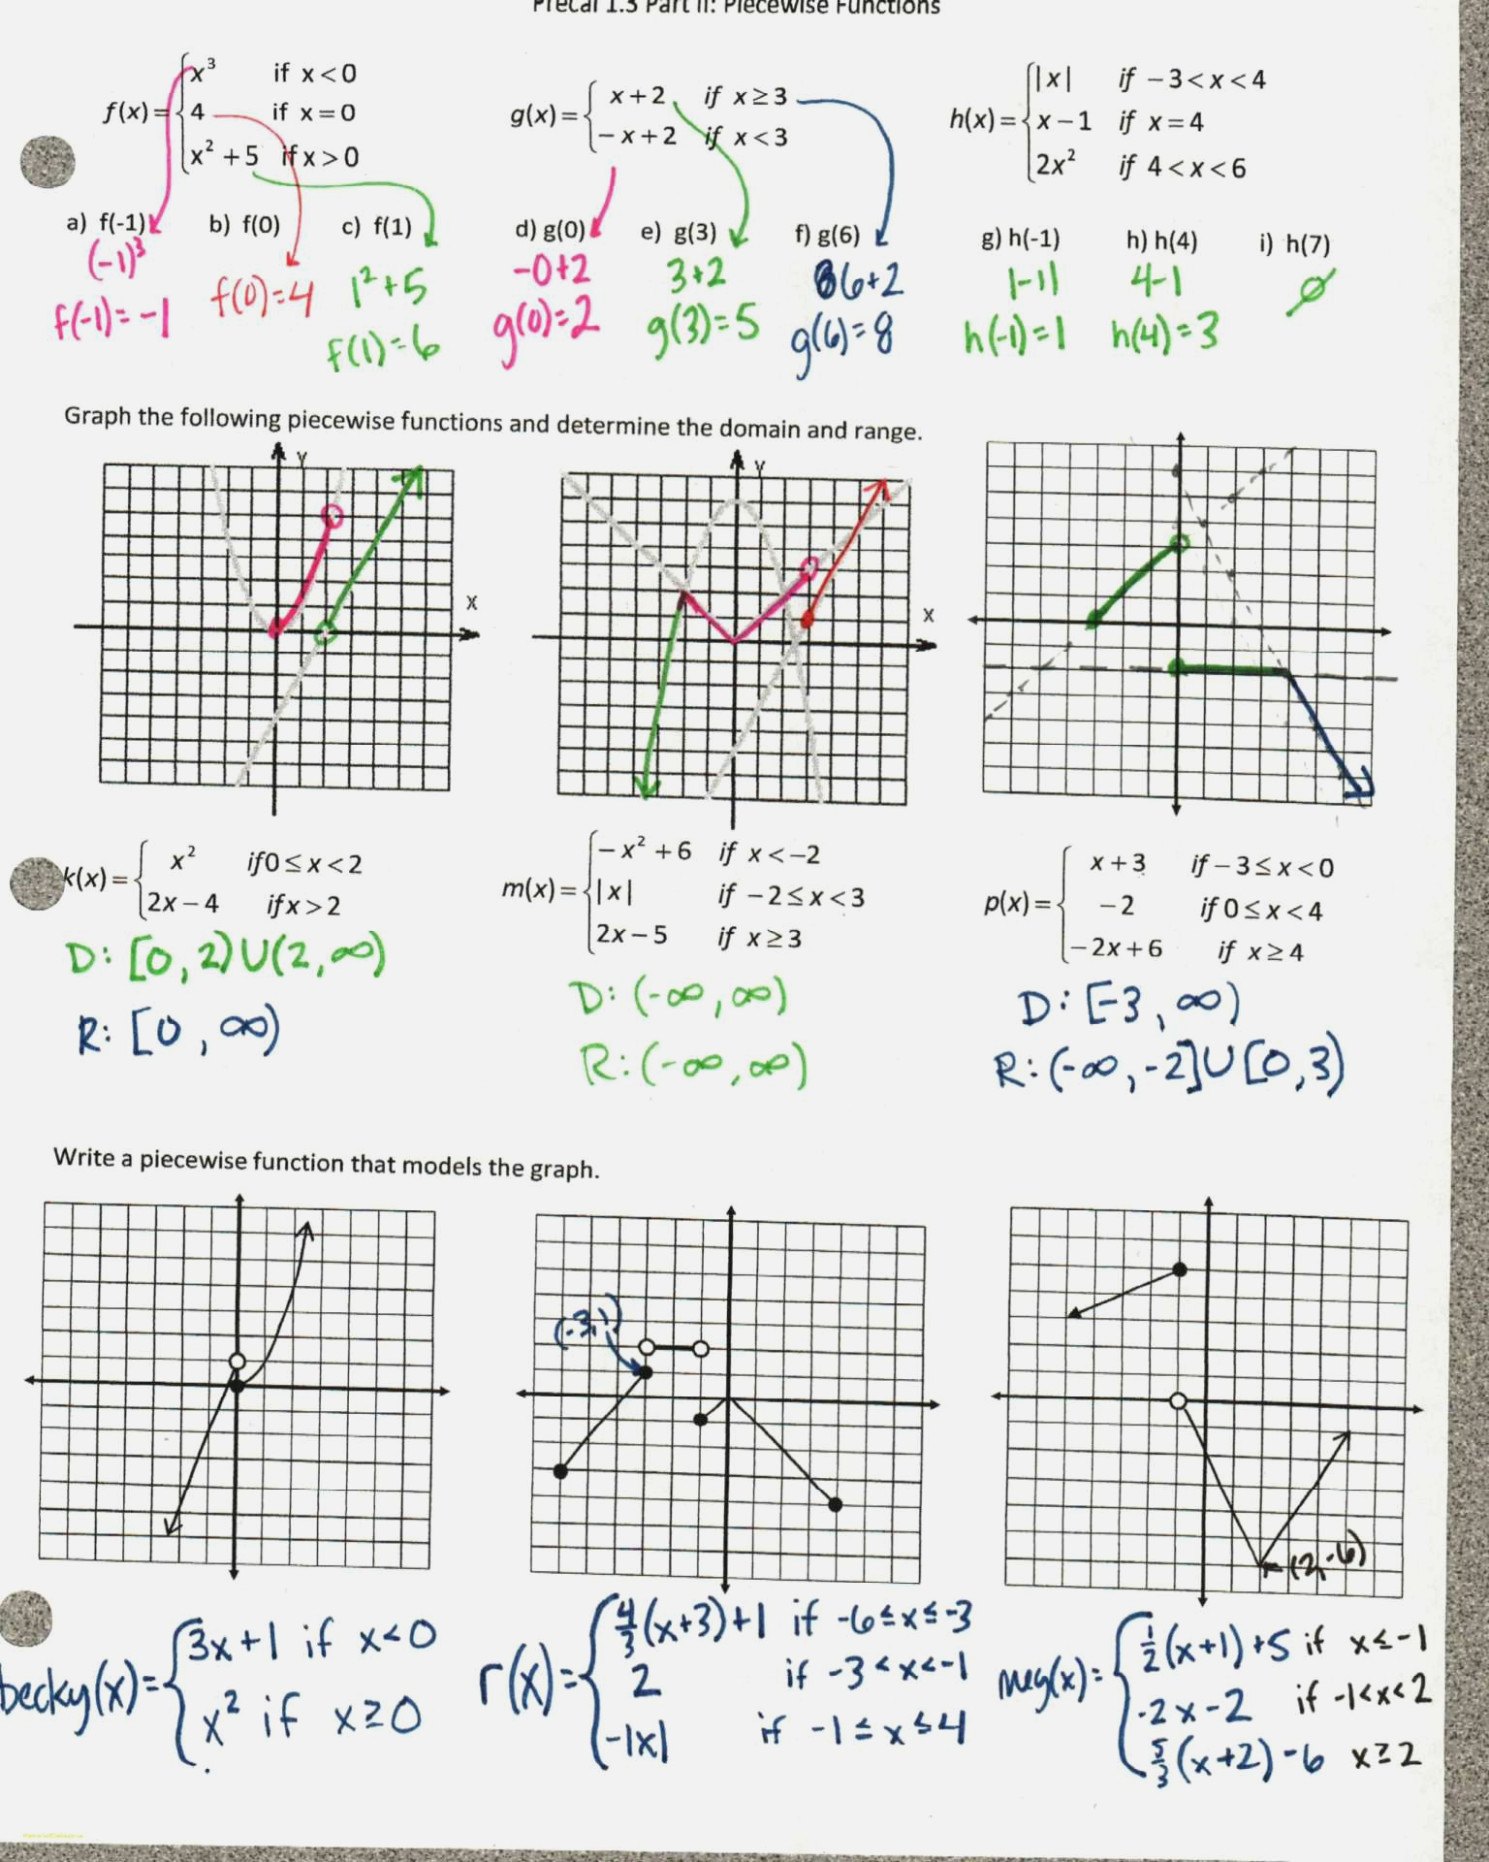 Precal 1.3 Part II: Piecewise Functions
f(x)= { x³ if x<0
4 if x=0
x²+5 if x>0
g(x)= { x+2 if x≥3
-x+2 if x<3
h(x)= { |x| if -3<x<4
x-1 if x=4
2x² if 4<x<6
a) f(-1) b) f(0) c) f(1) d) g(0) e) g(3) f) g(6) g) h(-1) h) h(4) i) h(7)
(-1)³
f(-1)=-1
f(0)=4
1²+5
f(1)=6
-0+2
g(0)=2
3+2
g(3)=5
6+2
g(6)=8
|-1|
h(-1)=1
4-1
h(4)=3
∅
Graph the following piecewise functions and determine the domain and range.
y
x
y
x
k(x)= { x² if 0≤x<2
2x-4 if x>2
D: [0,2)U(2,∞)
R: [0,∞)
m(x)= { -x²+6 if x<-2
|x| if -2≤x<3
2x-5 if x≥3
D: (-∞,∞)
R: (-∞,∞)
p(x)= { x+3 if -3≤x<0
-2 if 0≤x<4
-2x+6 if x≥4
D: [-3,∞)
R: (-∞,-2]U[0,3)
Write a piecewise function that models the graph.
(-3,1)
(2,-6)
becky(x)= { 3x+1 if x<0
x² if x≥0
r(x)= { 4/3(x+3)+1 if -6≤x≤-3
2 if -3<x<-1
-|x| if -1≤x≤4
meg(x)= { 1/2(x+1)+5 if x≤-1
-2x-2 if -1<x<2
5/3(x+2)-6 x≥2